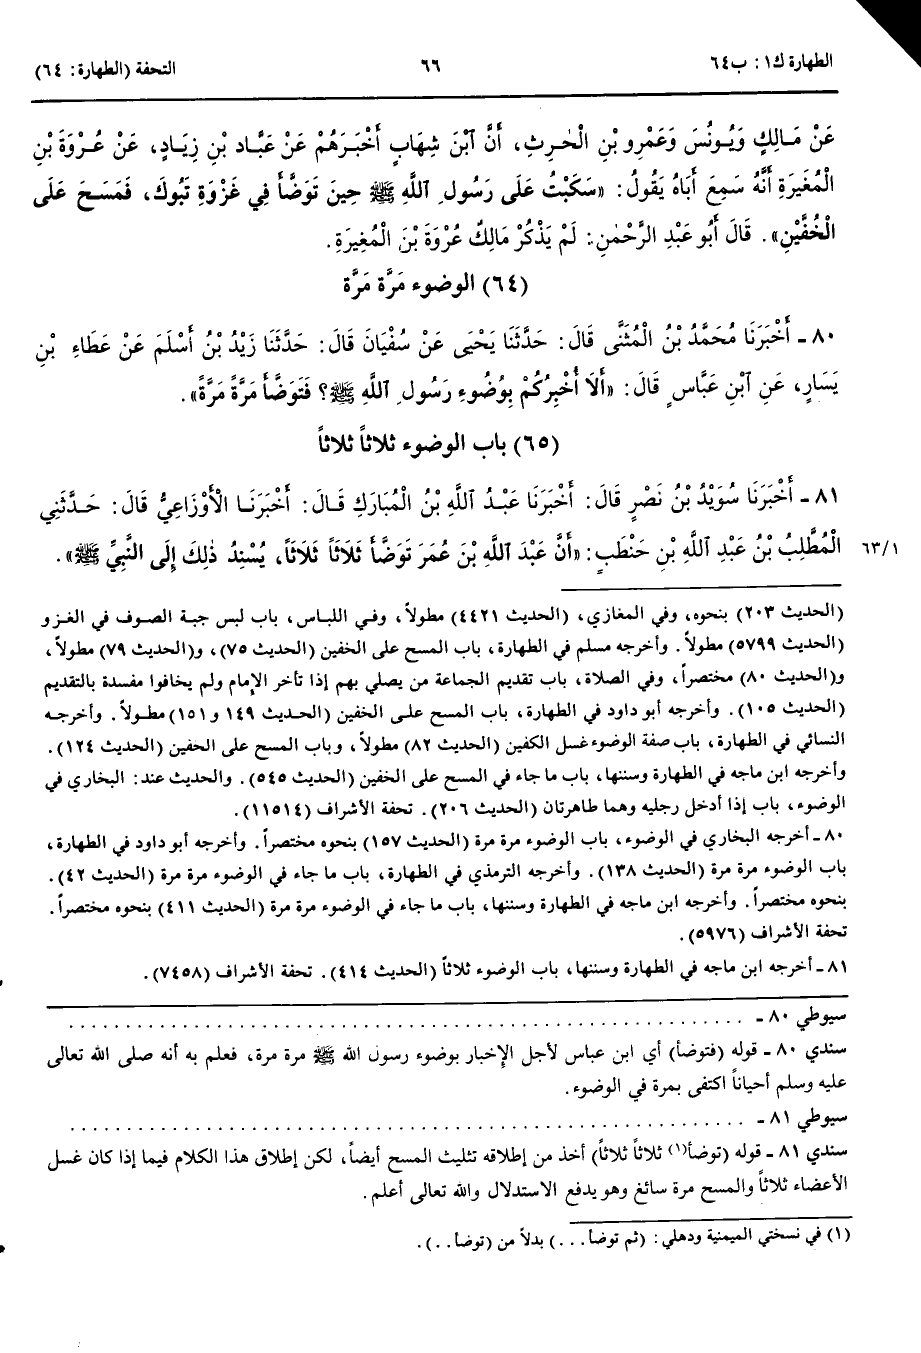 الطهارة ك١: ب٦٤
٦٦
التحفة (الطهارة: ٦٤)
عَنْ مَالِكٍ وَيُونُسَ وَعَمْرِو بْنِ الْحٰرِثِ، أَنَّ ٱبْنَ شِهَابٍ أَخْبَرَهُمْ عَنْ عَبَّادِ بْنِ زِيَادٍ، عَنْ عُرْوَةَ بْنِ
الْمُغَيرَةِ أَنَّهُ سَمِعَ أَبَاهُ يَقُولُ: «سَكَبْتُ عَلَى رَسُولِ ٱللَّهِ ﷺ حِينَ تَوَضَّأَ فِي غَزْوَةِ تَبُوكَ، فَمَسَحَ عَلَى
الْخُفَّيْنِ». قَالَ أَبُو عَبْدِ الرَّحْمٰنِ: لَمْ يَذْكُرْ مَالِكٌ عُرْوَةَ بْنَ الْمُغِيرَةِ.
(٦٤) الوضوء مَرَّة مَرَّة
٨٠ - أَخْبَرَنَا مُحَمَّدُ بْنُ الْمُثَنَّى قَالَ: حَدَّثَنَا يَحْيَى عَنْ سُفْيَانَ قَالَ: حَدَّثَنَا زَيْدُ بْنُ أَسْلَمَ عَنْ عَطَاءِ بْنِ
يَسَارٍ، عَنِ ٱبْنِ عَبَّاسٍ قَالَ: «أَلَا أُخْبِرُكُمْ بِوُضُوءِ رَسُولِ ٱللَّهِ ﷺ؟ فَتَوَضَّأَ مَرَّةً مَرَّةً».
(٦٥) باب الوضوء ثلاثاً ثلاثاً
٨١ - أَخْبَرَنَا سُوَيْدُ بْنُ نَصْرٍ قَالَ: أَخْبَرَنَا عَبْدُ اللَّهِ بْنُ الْمُبَارَكِ قَالَ: أَخْبَرَنَا الْأَوْزَاعِيُّ قَالَ: حَدَّثَنِي
الْمُطَّلِبُ بْنُ عَبْدِ ٱللَّهِ بْنِ حَنْطَبٍ: «أَنَّ عَبْدَ ٱللَّهِ بْنَ عُمَرَ تَوَضَّأَ ثَلَاثَاً ثَلَاثَاً، يُسْنِدُ ذٰلِكَ إِلَى النَّبِيِّ ﷺ».
٦٣/١
(الحديث ٢٠٣) بنحوه، وفي المغازي، (الحديث ٤٤٢١) مطولاً، وفي اللباس، باب لبس جبة الصوف في الغزو
(الحديث ٥٧٩٩) مطولاً. وأخرجه مسلم في الطهارة، باب المسح على الخفين (الحديث ٧٥)، و(الحديث ٧٩) مطولاً،
و(الحديث ٨٠) مختصراً، وفي الصلاة، باب تقديم الجماعة من يصلي بهم إذا تأخر الإمام ولم يخافوا مفسدة بالتقديم
(الحديث ١٠٥). وأخرجه أبو داود في الطهارة، باب المسح على الخفين (الحديث ١٤٩ و١٥١) مطولاً. وأخرجه
النسائي في الطهارة، باب صفة الوضوء غسل الكفين (الحديث ٨٢) مطولاً، وباب المسح على الخفين (الحديث ١٢٤).
وأخرجه ابن ماجه في الطهارة وسننها، باب ما جاء في المسح على الخفين (الحديث ٥٤٥). والحديث عند: البخاري في
الوضوء، باب إذا أدخل رجليه وهما طاهرتان (الحديث ٢٠٦). تحفة الأشراف (١١٥١٤).
٨٠ - أخرجه البخاري في الوضوء، باب الوضوء مرة مرة (الحديث ١٥٧) بنحوه مختصراً. وأخرجه أبو داود في الطهارة،
باب الوضوء مرة مرة (الحديث ١٣٨). وأخرجه الترمذي في الطهارة، باب ما جاء في الوضوء مرة مرة (الحديث ٤٢).
بنحوه مختصراً. وأخرجه ابن ماجه في الطهارة وسننها، باب ما جاء في الوضوء مرة مرة (الحديث ٤١١) بنحوه مختصراً.
تحفة الأشراف (٥٩٧٦).
٨١ - أخرجه ابن ماجه في الطهارة وسننها، باب الوضوء ثلاثاً (الحديث ٤١٤). تحفة الأشراف (٧٤٥٨).
سيوطي ٨٠ - ..........................................................
سندي ٨٠ - قوله (فتوضأ) أي ابن عباس لأجل الإخبار بوضوء رسول الله ﷺ مرة مرة، فعلم به أنه صلى الله تعالى
عليه وسلم أحياناً اكتفى بمرة في الوضوء.
سيوطي ٨١ - ..........................................................
سندي ٨١ - قوله (توضأ(١) ثلاثاً ثلاثاً) أخذ من إطلاقه تثليث المسح أيضاً، لكن إطلاق هذا الكلام فيما إذا كان غسل
الأعضاء ثلاثاً والمسح مرة سائغ وهو يدفع الاستدلال والله تعالى أعلم.
(١) في نسختي الميمنية ودهلي: (ثم توضأ...) بدلاً من (توضأ..).